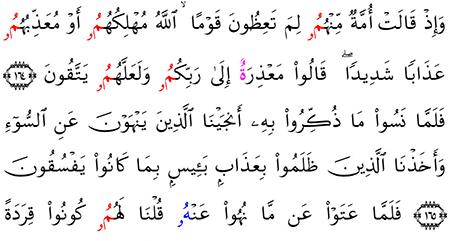 وَإِذْ قَالَتْ أُمَّةٌ مِّنْهُمُۥ لِمَ تَعِظُونَ قَوْمًا ۙ ٱللَّهُ مُهْلِكُهُمُۥ أَوْ مُعَذِّبُهُمُۥ
عَذَابًا شَدِيدًا ۖ قَالُوا۟ مَعْذِرَةٌ إِلَىٰ رَبِّكُمُۥ وَلَعَلَّهُمُۥ يَتَّقُونَ ۝١٦٤
فَلَمَّا نَسُوا۟ مَا ذُكِّرُوا۟ بِهِۦ أَنجَيْنَا ٱلَّذِينَ يَنْهَوْنَ عَنِ ٱلسُّوٓءِ
وَأَخَذْنَا ٱلَّذِينَ ظَلَمُوا۟ بِعَذَابٍۭ بَـِٔيسٍۭ بِمَا كَانُوا۟ يَفْسُقُونَ
۝١٦٥ فَلَمَّا عَتَوْا۟ عَن مَّا نُهُوا۟ عَنْهُۥ قُلْنَا لَهُمُۥ كُونُوا۟ قِرَدَةً